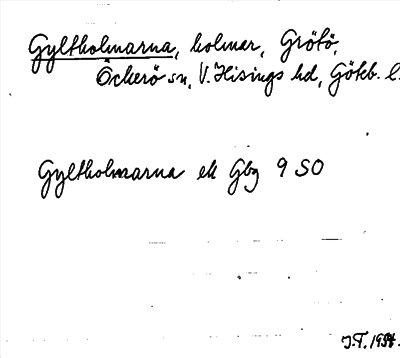 Gyltholmarna, holmar, Grötö,
Öckerö sn, V. Hisings hd, Göteb. l.
Gyltholmarna ek Gbg 9 SO
J.T. 1934.